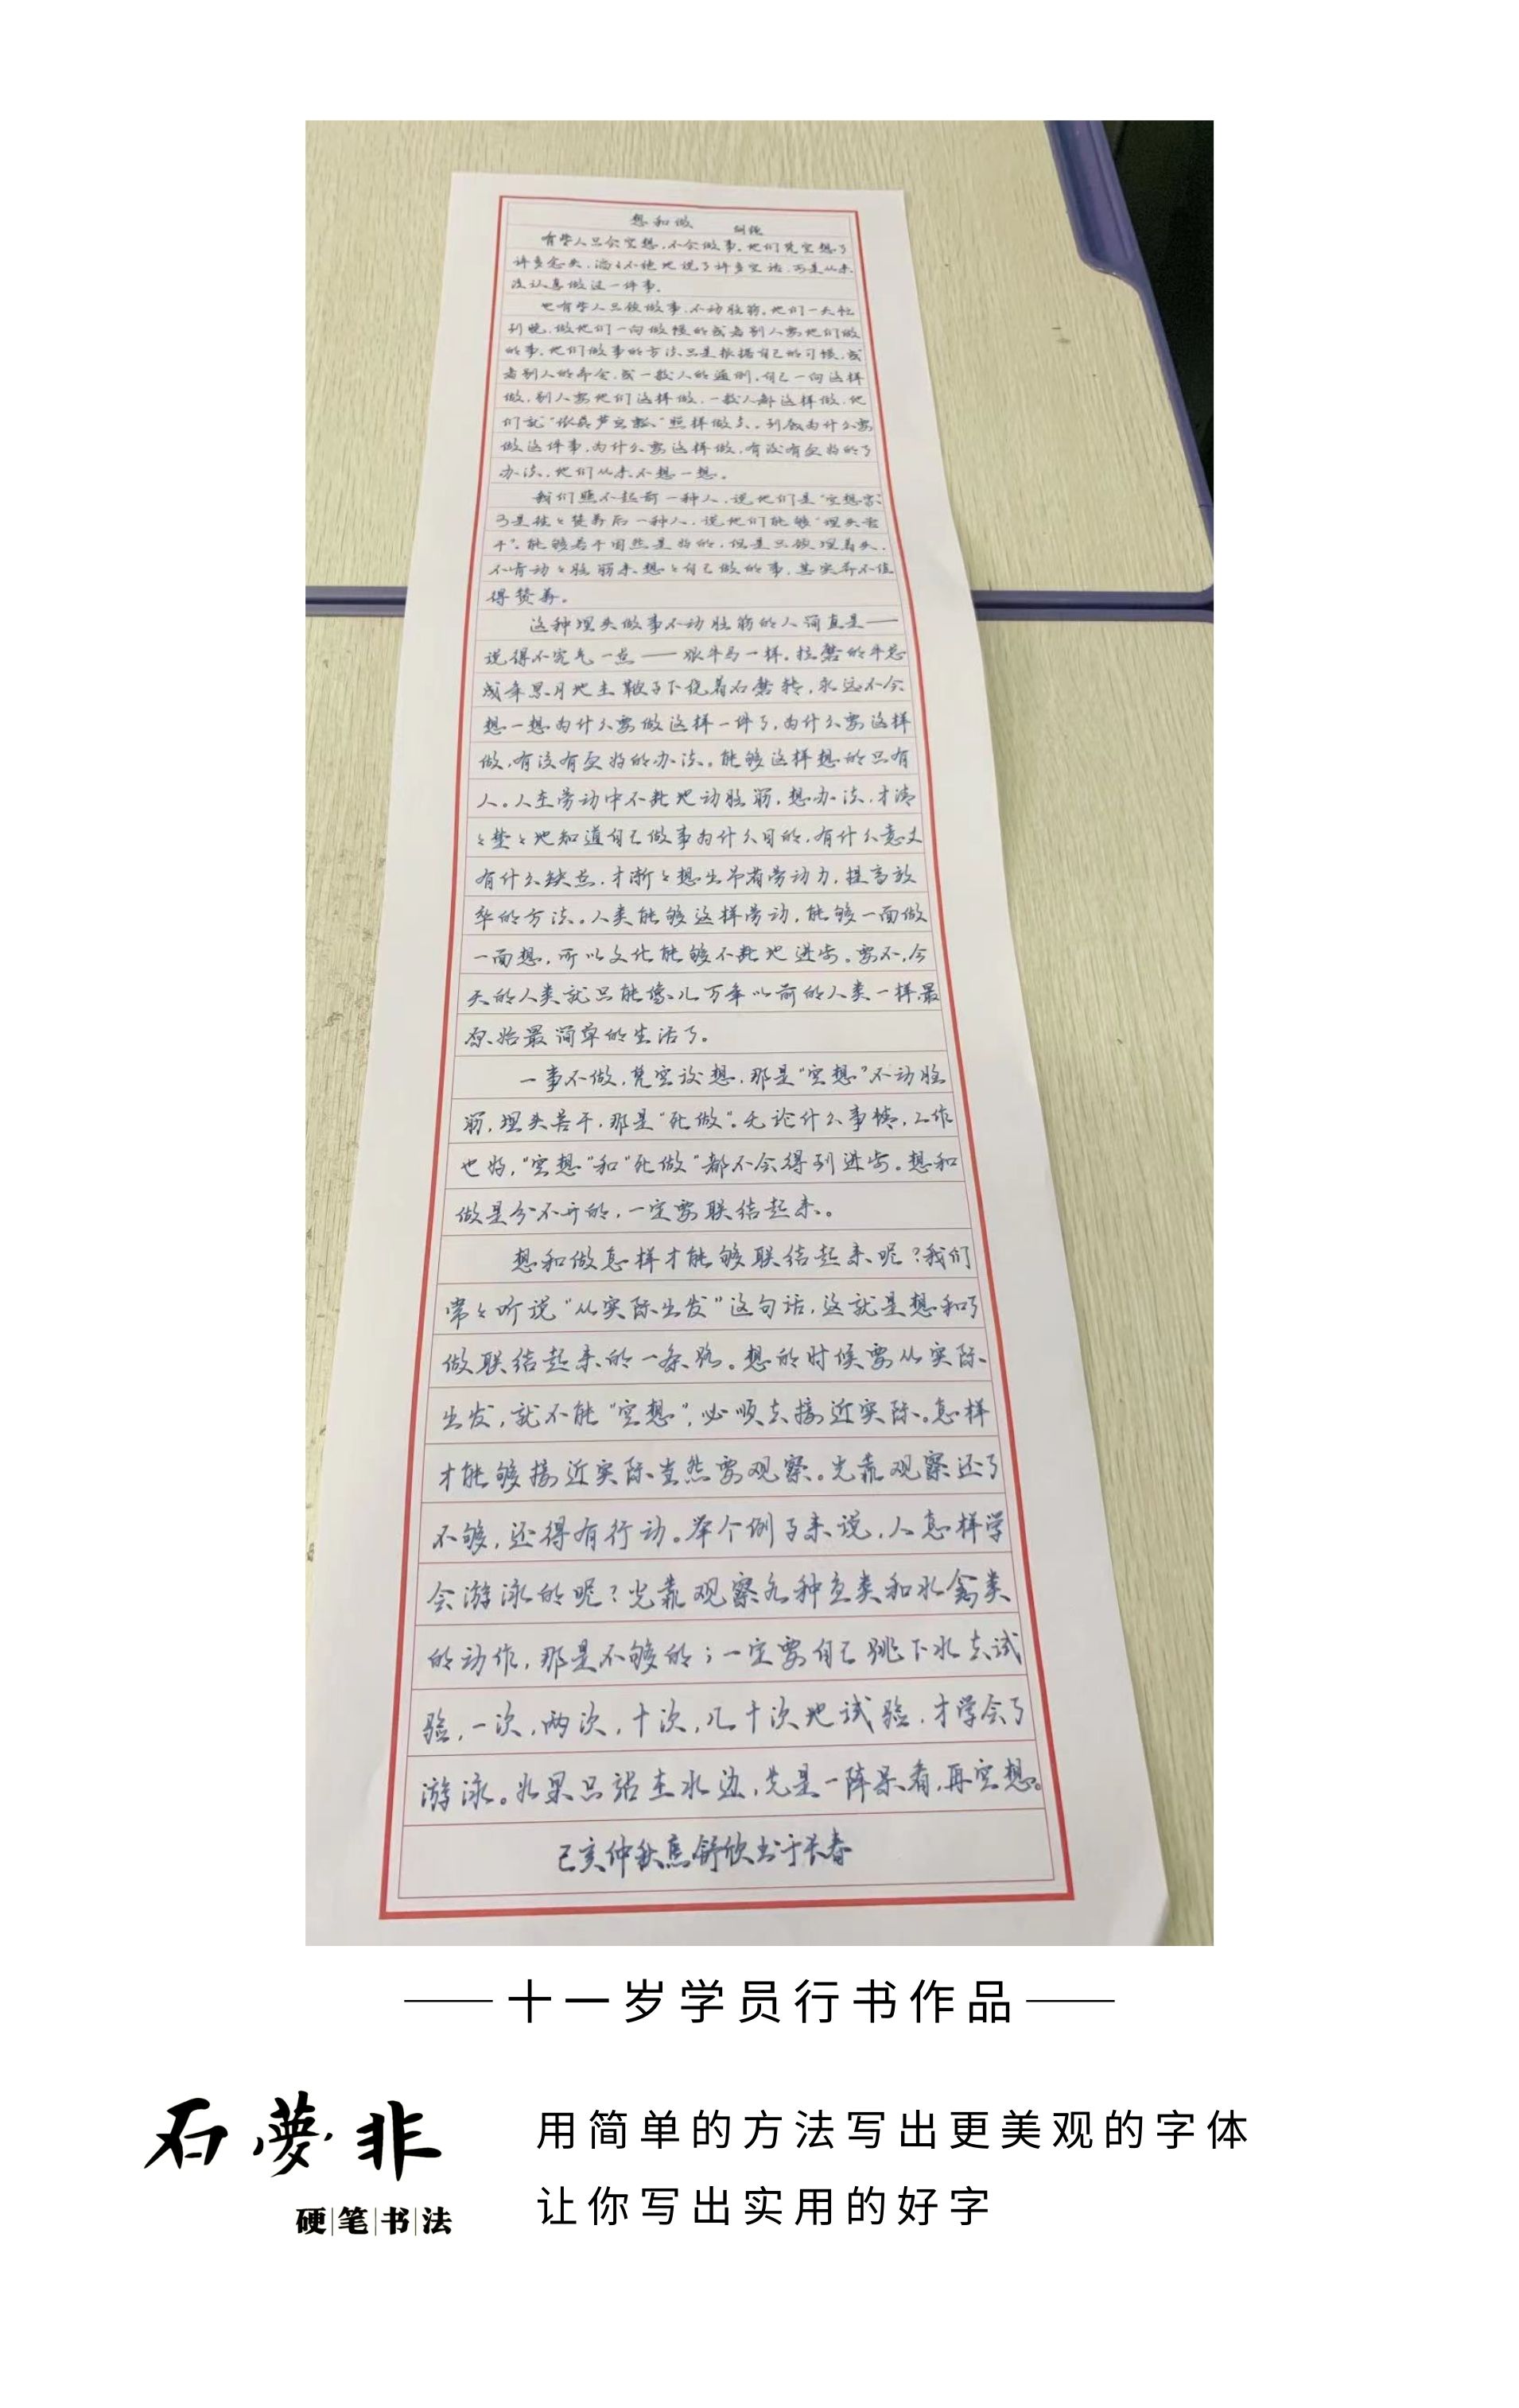 想和做 胡绳
有些人只会空想,不会做事。他们凭空想了
许多念头,滔々不绝地说了许多空话,可是从来
没认真做过一件事。
也有些人只顾做事,不动脑筋。他们一天忙
到晚,做他们一向做惯的或者别人要他们做
的事。他们做事的方法只是根据自己的习惯,或
者别人的命令,或一般人的通例。自己一向这样
做,别人要他们这样做,一般人都这样做,他
们就“依葫芦画瓢”照样做去。到底为什么要
做这件事,为什么要这样做,有没有更好的
办法,他们从来不想一想。
我们瞧不起前一种人,说他们是“空想家”
可是往々赞美后一种人,说他们能够“埋头苦
干”。能够苦干固然是好的,但是只顾埋着头,
不肯动々脑筋来想々自己做的事,其实并不值
得赞美。
这种埋头做事不动脑筋的人简直是——
说得不客气一点——跟牛马一样。拉磨的牛总
成年累月地在鞭子下绕着石磨转,永远不会
想一想为什么要做这样一件事,为什么要这样
做,有没有更好的办法。能够这样想的只有
人。人在劳动中不断地动脑筋,想办法,才清
々楚々地知道自己做事为什么目的,有什么意义
有什么缺点,才渐々想出节省劳动力,提高效
率的方法。人类能够这样劳动,能够一面做
一面想,所以文化能够不断地进步。要不,今
天的人类就只能像几万年以前的人类一样最
原始最简单的生活了。
一事不做,凭空设想,那是“空想”不动脑
筋,埋头苦干,那是“死做”。无论什么事情,工作
也好,“空想”和“死做”都不会得到进步。想和
做是分不开的,一定要联结起来。
想和做怎样才能够联结起来呢?我们
常々听说“从实际出发”这句话,这就是想和
做联结起来的一条路。想的时候要从实际
出发,就不能“空想”,必须去接近实际。怎样
才能够接近实际当然要观察。光靠观察还
不够,还得有行动。举个例子来说,人怎样学
会游泳的呢?光靠观察各种鱼类和水禽类
的动作,那是不够的;一定要自己跳下水去试
验,一次,两次,十次,几十次地试验,才学会了
游泳。如果只站在水边,先是一阵呆看,再空想。
己亥仲秋焦舒欣书于长春
十一岁学员行书作品
石夢非
硬笔书法
用简单的方法写出更美观的字体
让你写出实用的好字